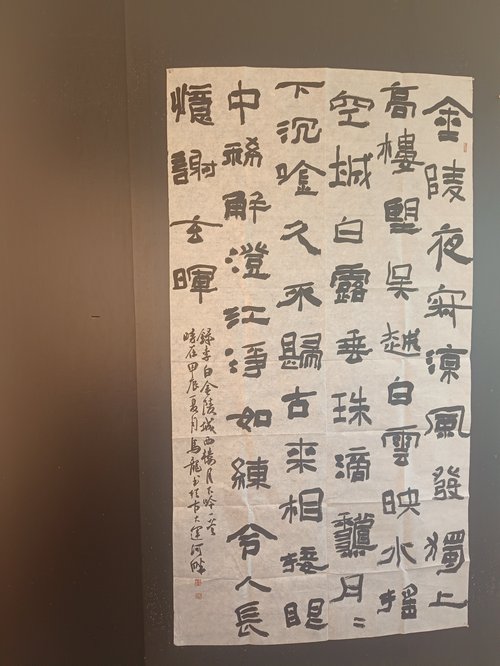 金陵夜寂涼風發獨上
高樓朢吳越白雲映水搖
空城白露垂珠滴龝月〻
下沉唫久不歸古來相接眼
中稀解澄江淨如練令人長
憶謝玄暉
錄李白金陵城西樓月下吟一首
時在甲辰夏月馬龍書於大運河畔